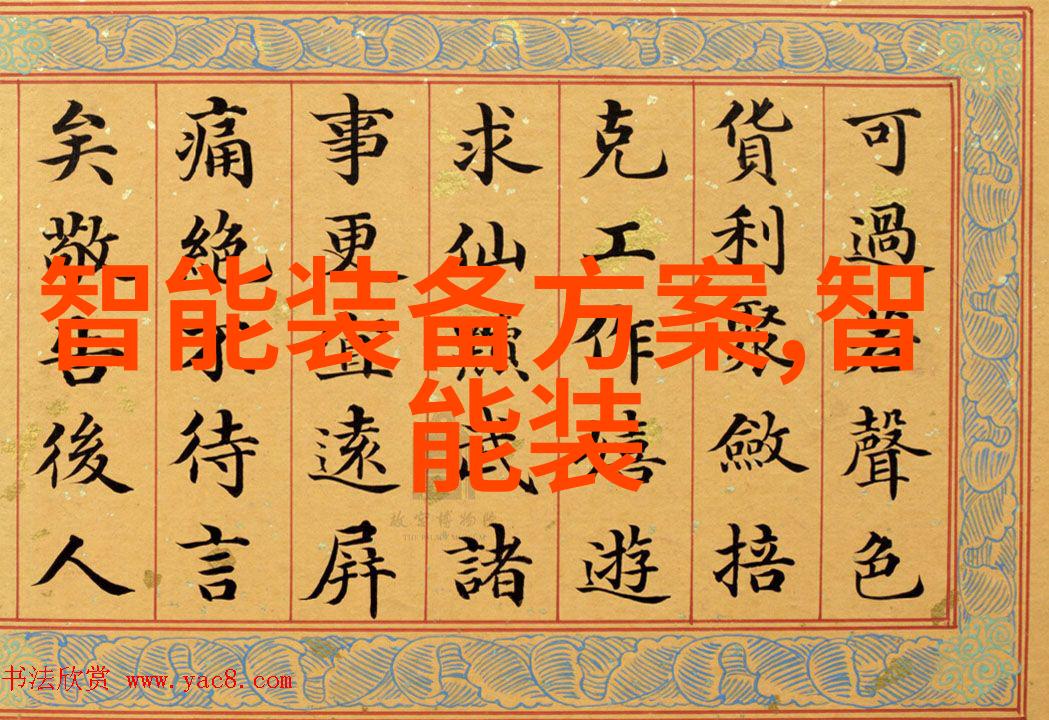 可過若聲色
貨利聚斂掊
克工作嬉遊
求仙黷武諸
事更宜遠屏
痛絕不待言
矣敬告後人
智能装备方案,智
能装
故宫博物院
书法欣赏 www.yac8.com